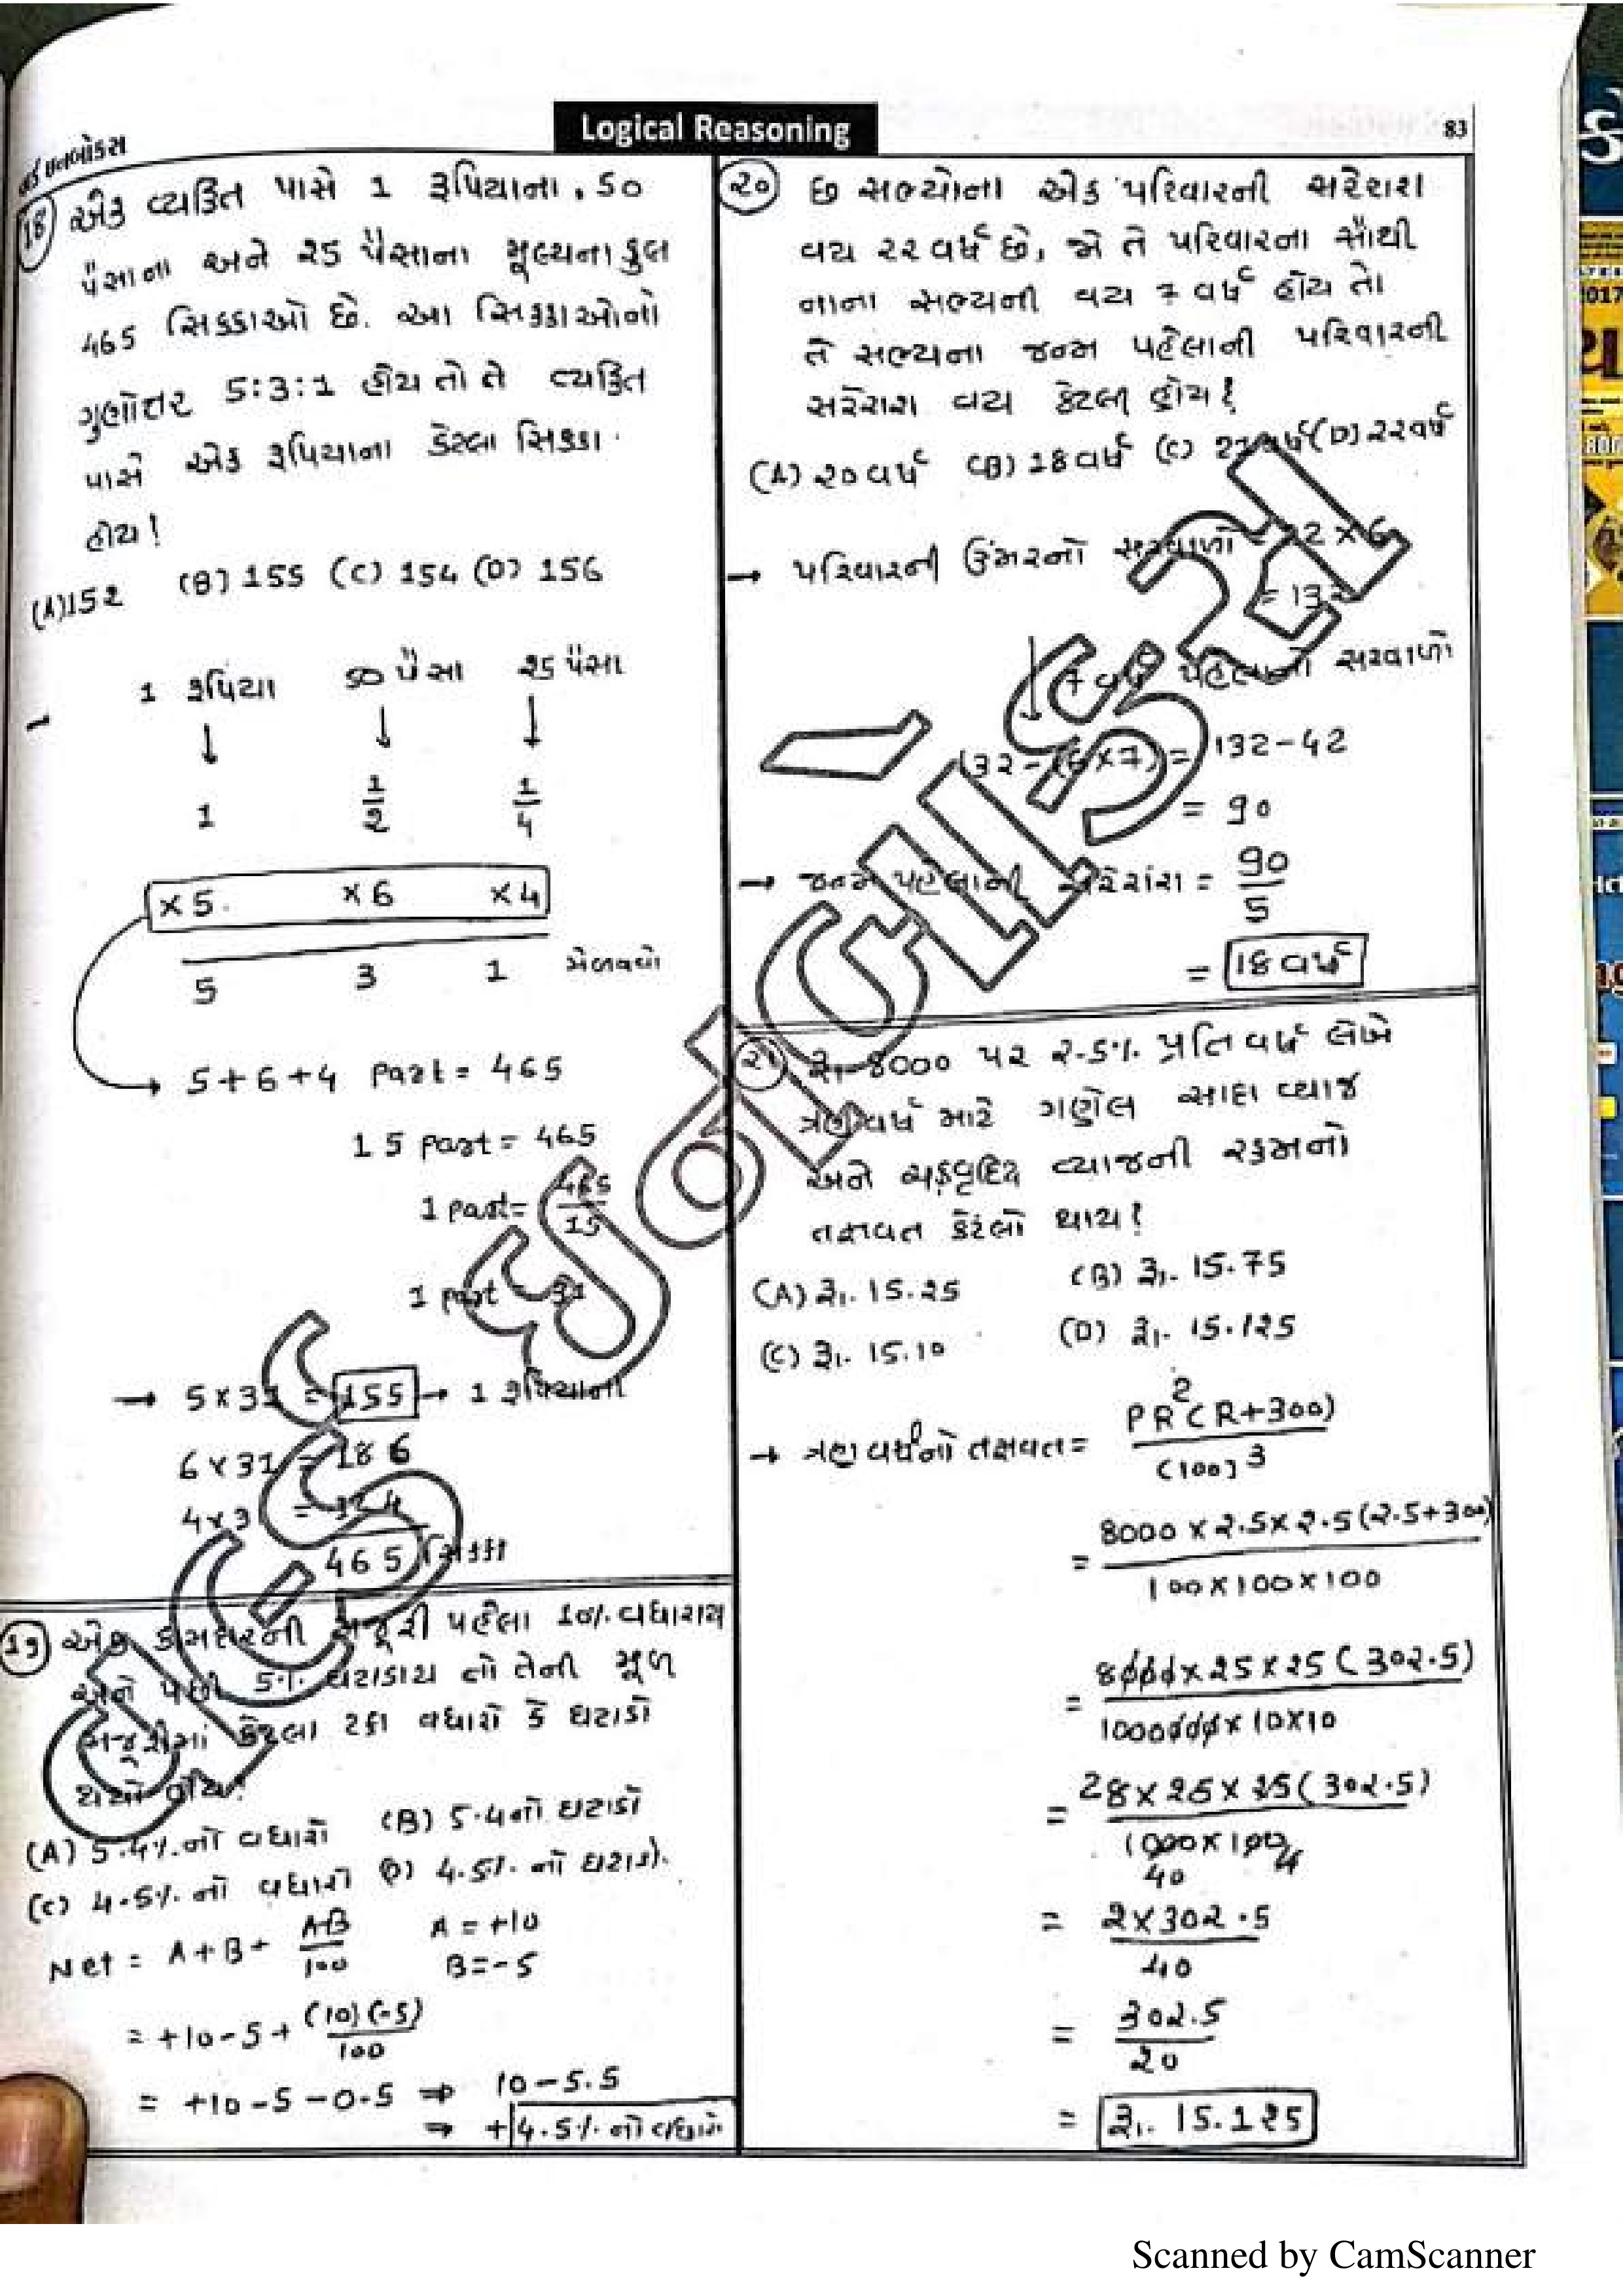 Logical Reasoning
83
18 એક વ્યકિત પાસે 1 રૂપિયાના, 50
પૈસાના અને 25 પૈસાના મૂલ્યના કુલ
465 સિક્કાઓ છે. આ સિક્કાઓનો
ગુણોત્તર 5:3:1 હોય તો તે વ્યકિત
પાસે એક રૂપિયાના કેટલા સિક્કા
હોય!
(A) 152 (B) 155 (C) 154 (D) 156
1 રૂપિયા 50 પૈસા 25 પૈસા
↓ ↓ ↓
1 1/2 1/4
×5 ×6 ×4
5 3 1 મેળવવો
→ 5+6+4 Part = 465
15 part = 465
1 part = 465/15
1 part = 31
→ 5×31 = 155 → 1 રૂપિયાના
6×31 = 186
4×31 = 124
465 સિક્કા
19 એક કામદારની મજૂરી પહેલા 10% વધારાય
અને પછી 5% ઘટાડાય તો તેની મૂળ
મજૂરીમાં કેટલા ટકા વધારો કે ઘટાડો
થયો હોય!
(A) 5.4% નો વધારો (B) 5.4 નો ઘટાડો
(C) 4.5% નો વધારો (D) 4.5% નો ઘટાડો.
Net = A+B+ AB/100 A = +10
B = -5
= +10-5+ (10)(-5)/100
= +10-5-0.5 ⇒ 10-5.5
⇒ +4.5% નો વધારો
૨૦ છ સભ્યોના એક પરિવારની સરેરાશ
વય ૨૨ વર્ષ છે, જો તે પરિવારના સૌથી
નાના સભ્યની વય 7 વર્ષ હોય તો
તે સભ્યના જન્મ પહેલાની પરિવારની
સરેરાશ વય કેટલી હોય!
(A) ૨૦ વર્ષ (B) 18 વર્ષ (C) વર્ષ (D) ૨૨ વર્ષ
→ પરિવારની ઉંમરનો સરવાળો = 22×6
= 132
↓ 7 વર્ષ પહેલાનો સરવાળો
132-(6×7) = 132-42
= 90
→ જન્મ પહેલાની સરેરાશ = 90/5
= 18 વર્ષ
૨૧ રૂ. 8000 પર 2.5% પ્રતિ વર્ષ લેખે
ત્રણ વર્ષ માટે ગણેલ સાદા વ્યાજ
અને ચક્રવૃદ્ધિ વ્યાજની રકમનો
તફાવત કેટલો થાય!
(A) રૂ. 15.25 (B) રૂ. 15.75
(C) રૂ. 15.10 (D) રૂ. 15.125
→ ત્રણ વર્ષનો તફાવત = PR²(R+300)/(100)³
= 8000×2.5×2.5(2.5+300)/100×100×100
= 8000×25×25(302.5)/1000000×10×10
= 28×25×25(302.5)/1000×100 40 4
= 2×302.5/40
= 302.5/20
= રૂ. 15.125
Scanned by CamScanner